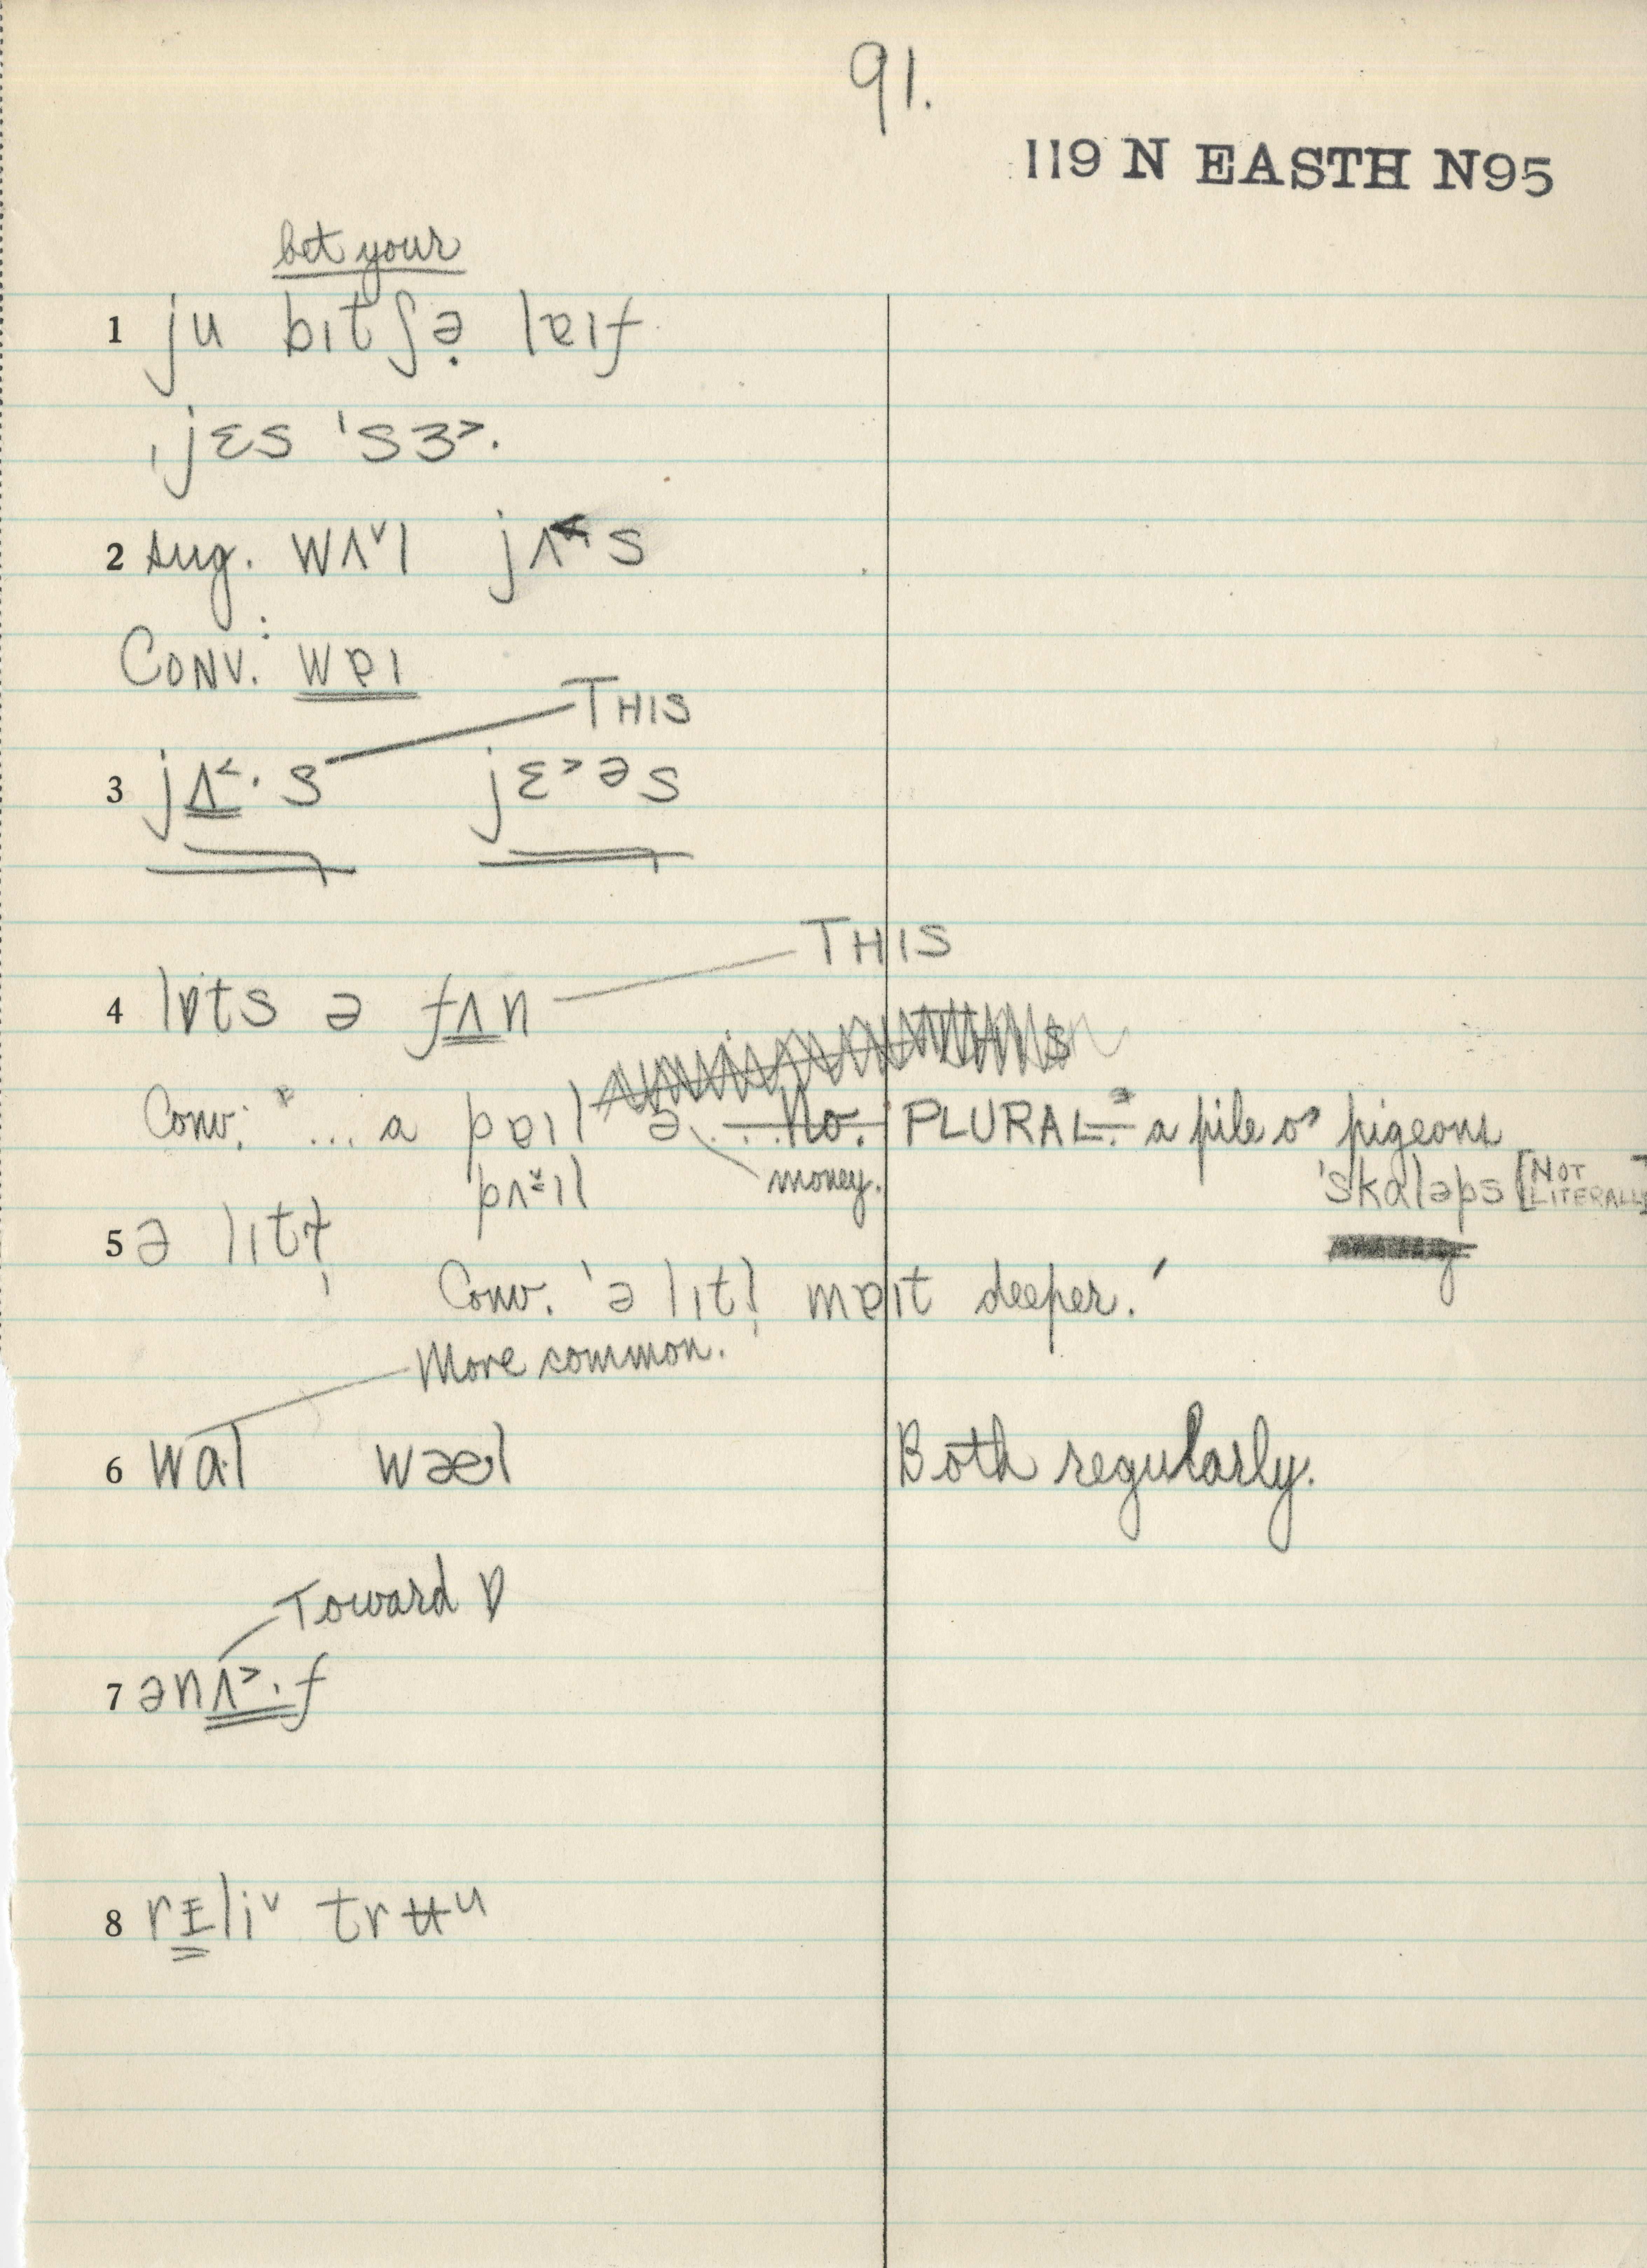 91.
119 N EASTH N95
bet your
1 ju bɪtʃə̣ lɐɪf
ˌjɛs ˈsɜ˃.
2 sug. wʌ˅l jʌ˂s
Conv.: wɐɪ
THIS
3 jʌ˂· s jɛ˃əs
THIS
4 lɒts ə fʌn
THIS
Conv: "... a pɐɪl ə ... No. PLURAL." a pile o' pigeons
pʌ˅ɪl money. ˈskɑləps [NOT LITERALLY]
5 ə lɪtɫ̩
Conv. 'ə lɪtl̩ mɐɪt deeper.'
More common.
6 wɑ·l wæl Both regularly.
Toward ɒ
7 ənʌ˃·f
8 rɪli˅ trʉu